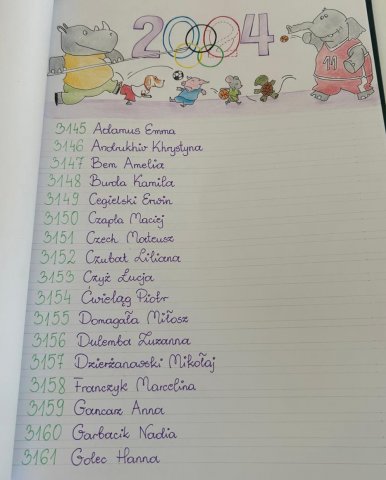 2004
11
3145 Adamus Emma
3146 Andrukhiv Khrystyna
3147 Bem Amelia
3148 Burda Kamila
3149 Cegielski Erwin
3150 Czapla Maciej
3151 Czech Mateusz
3152 Czubat Liliana
3153 Czyż Łucja
3154 Ćwieląg Piotr
3155 Domagała Miłosz
3156 Dulemba Zuzanna
3157 Dzierżanowski Mikołaj
3158 Franczyk Marcelina
3159 Gancarz Anna
3160 Garbacik Nadia
3161 Golec Hanna